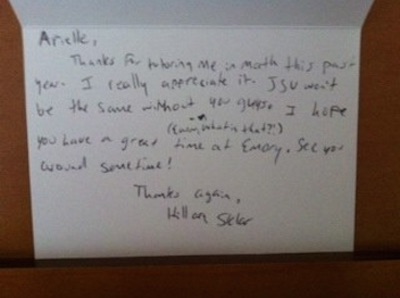 Arielle,
Thanks for tutoring me in math this past
year. I really appreciate it. JSU won't
be the same without you guys. I hope
(Emm, what is that?!)
you have a great time at Emory. See you
around sometime!
Thanks again,
Hillary